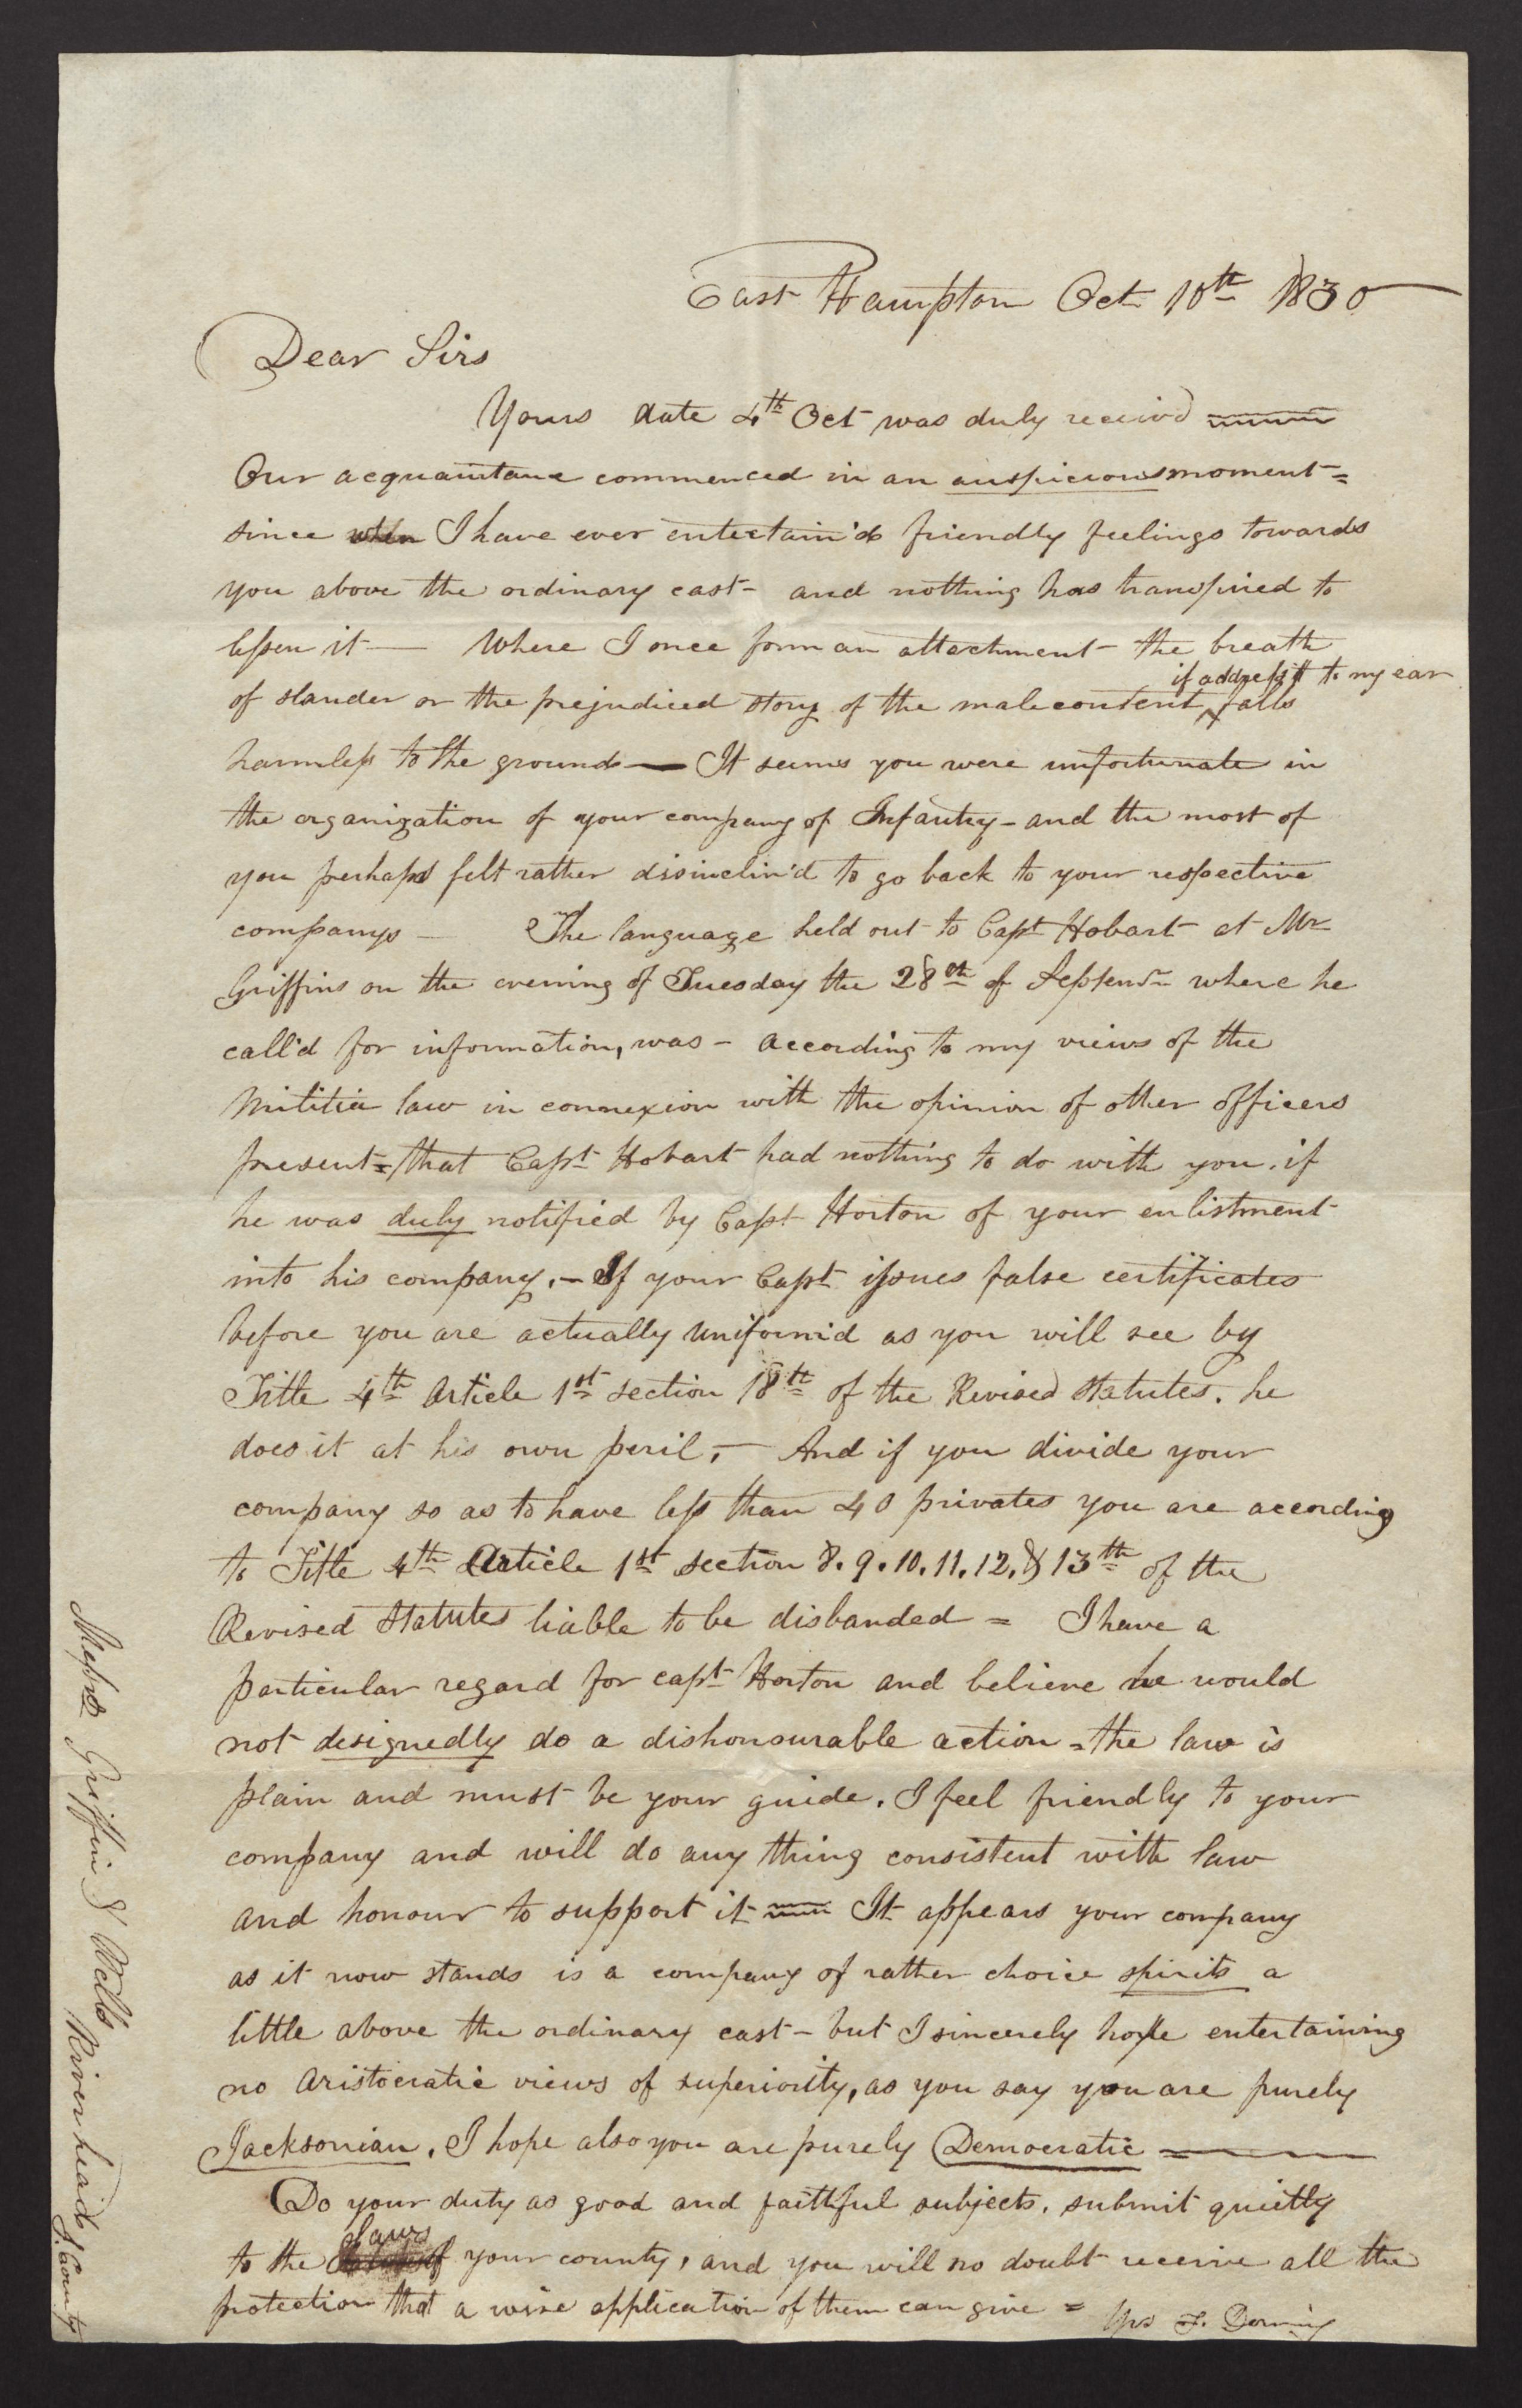 East Hampton Oct 10th 1830
Dear Sirs
Yours date 4th Oct was duly receivd
Our acquaintance commenced in an auspicious moment =
since when I have ever entertain'd friendly feelings towards
you above the ordinary cast - and nothing has transpired to
lessen it — Where I once form an attachment - the breath
if address'd to my ear
of slander or the prejudiced story of the malecontent falls
harmless to the ground — It seems you were unfortunate in
the organization of your company of Infantry - and the most of
you perhaps felt rather disinclin'd to go back to your respective
companys — The language held out to Capt Hobart at Mr
Griffins on the evening of Tuesday the 28th of Septembr where he
call'd for information, was - according to my views of the
Militia law in connexion with the opinion of other officers
present = that Capt Hobart had nothing to do with you, if
he was duly notified by Capt Horton of your enlistment
into his company. - If your Capt issues false certificates
before you are actually uniform'd as you will see by
Title 4th Article 1st section 18th of the Revised Statutes. he
does it at his own peril, - And if you divide your
company so as to have less than 40 privates you are according
to Title 4th Article 1st section 8. 9. 10. 11. 12. & 13th of the
Revised Statutes liable to be disbanded = I have a
particular regard for capt Horton and believe he would
not designedly do a dishonourable action = the law is
plain and must be your guide. I feel friendly to your
company and will do any thing consistent with law
and honour to support it It appears your company
as it now stands is a company of rather choice spirits a
little above the ordinary cast - but I sincerely hope entertaining
no aristocratic views of superiority, as you say you are purely
Jacksonian. I hope also you are purely Democratic =
Do your duty as good and faithful subjects, submit quietly
laws
to the of your county, and you will no doubt receive all the
protection that a wise application of them can give = Yrs F. Dering
Messrs Griffin & Wells River head S. County